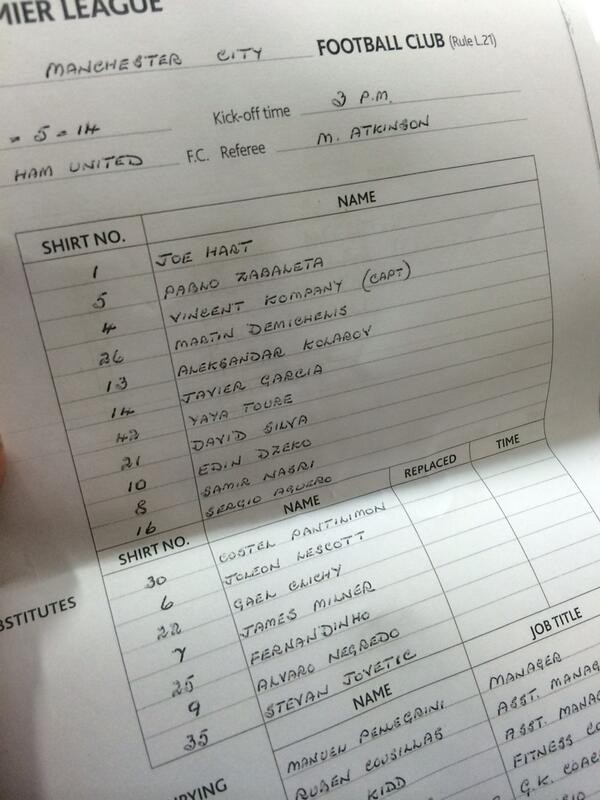 MIER LEAGUE
MANCHESTER CITY FOOTBALL CLUB (Rule L.21)
= 5 = 14 Kick-off time 3 P.M.
HAM UNITED F.C. Referee M. ATKINSON
SHIRT NO. NAME
1 JOE HART
5 PABLO ZABALETA
4 VINCENT KOMPANY (CAPT)
26 MARTIN DEMICHELIS
13 ALEKSANDAR KOLAROV
14 JAVIER GARCIA
42 YAYA TOURE
21 DAVID SILVA
10 EDIN DZEKO
8 SAMIR NASRI
16 SERGIO AGUERO
SHIRT NO. NAME REPLACED TIME
30 COSTEL PANTILIMON
6 JOLEON LESCOTT
22 GAEL CLICHY
7 JAMES MILNER
25 FERNANDINHO
9 ALVARO NEGREDO
35 STEVAN JOVETIC
BSTITUTES
NAME JOB TITLE
MANUEL PELLEGRINI MANAGER
RUBEN COUSILLAS ASST. MANAG
KIDD ASST. MANAG
FITNESS CO
G.K. COAC
PYING